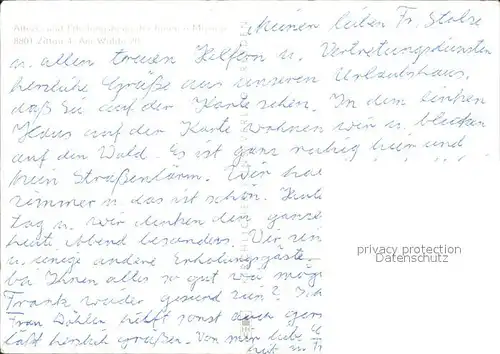 Meinen lieben Fr. Stolze
u. allen treuen Helfern u. Vertretungsdiensten
herzliche Grüße aus unseren Urlaubshaus,
daß Sie auf der Karte sehen. In dem linken
Haus auf der Karte wohnen wir u. blicken
auf den Wald. Es ist ganz ruhig hier und
kein Straßenlärm. Wir ha
zimmer u das ist schön. Heute
Tag u. wir denken den ganze
heute Abend besonders. Wir sin
u. einige andere Erholungsgäste.
bei Ihnen alles so gut wie mög
Frank wieder gesund sein?
Frau Döhler hilft sonst auch gern
läßt herzlich grüßen. Von mir liebe
8801 Zittau
privacy protection
Datenschutz